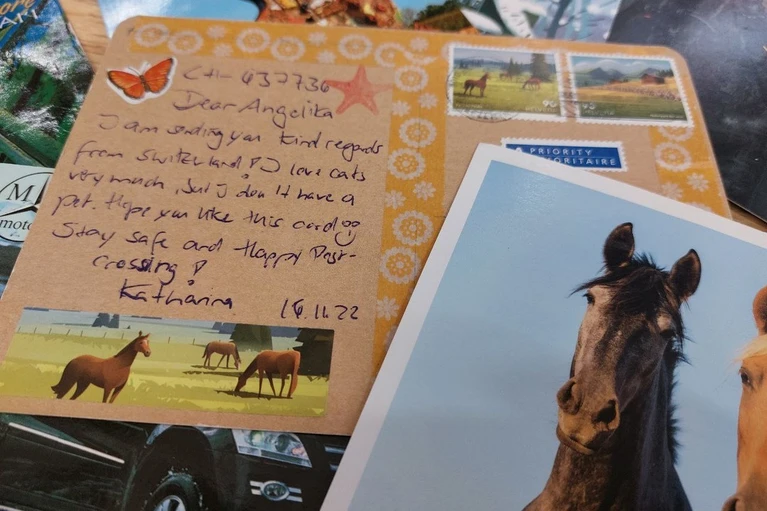 CH- 637736
Dear Angelika
I am sending you kind regards
from Switzerland! I love cats
very much, but I don't have a
pet. Hope you like this card
Stay safe and Happy Post-
crossing!
Katharina
16.11.22
PRIORITY
PRIORITAIRE
M
moto